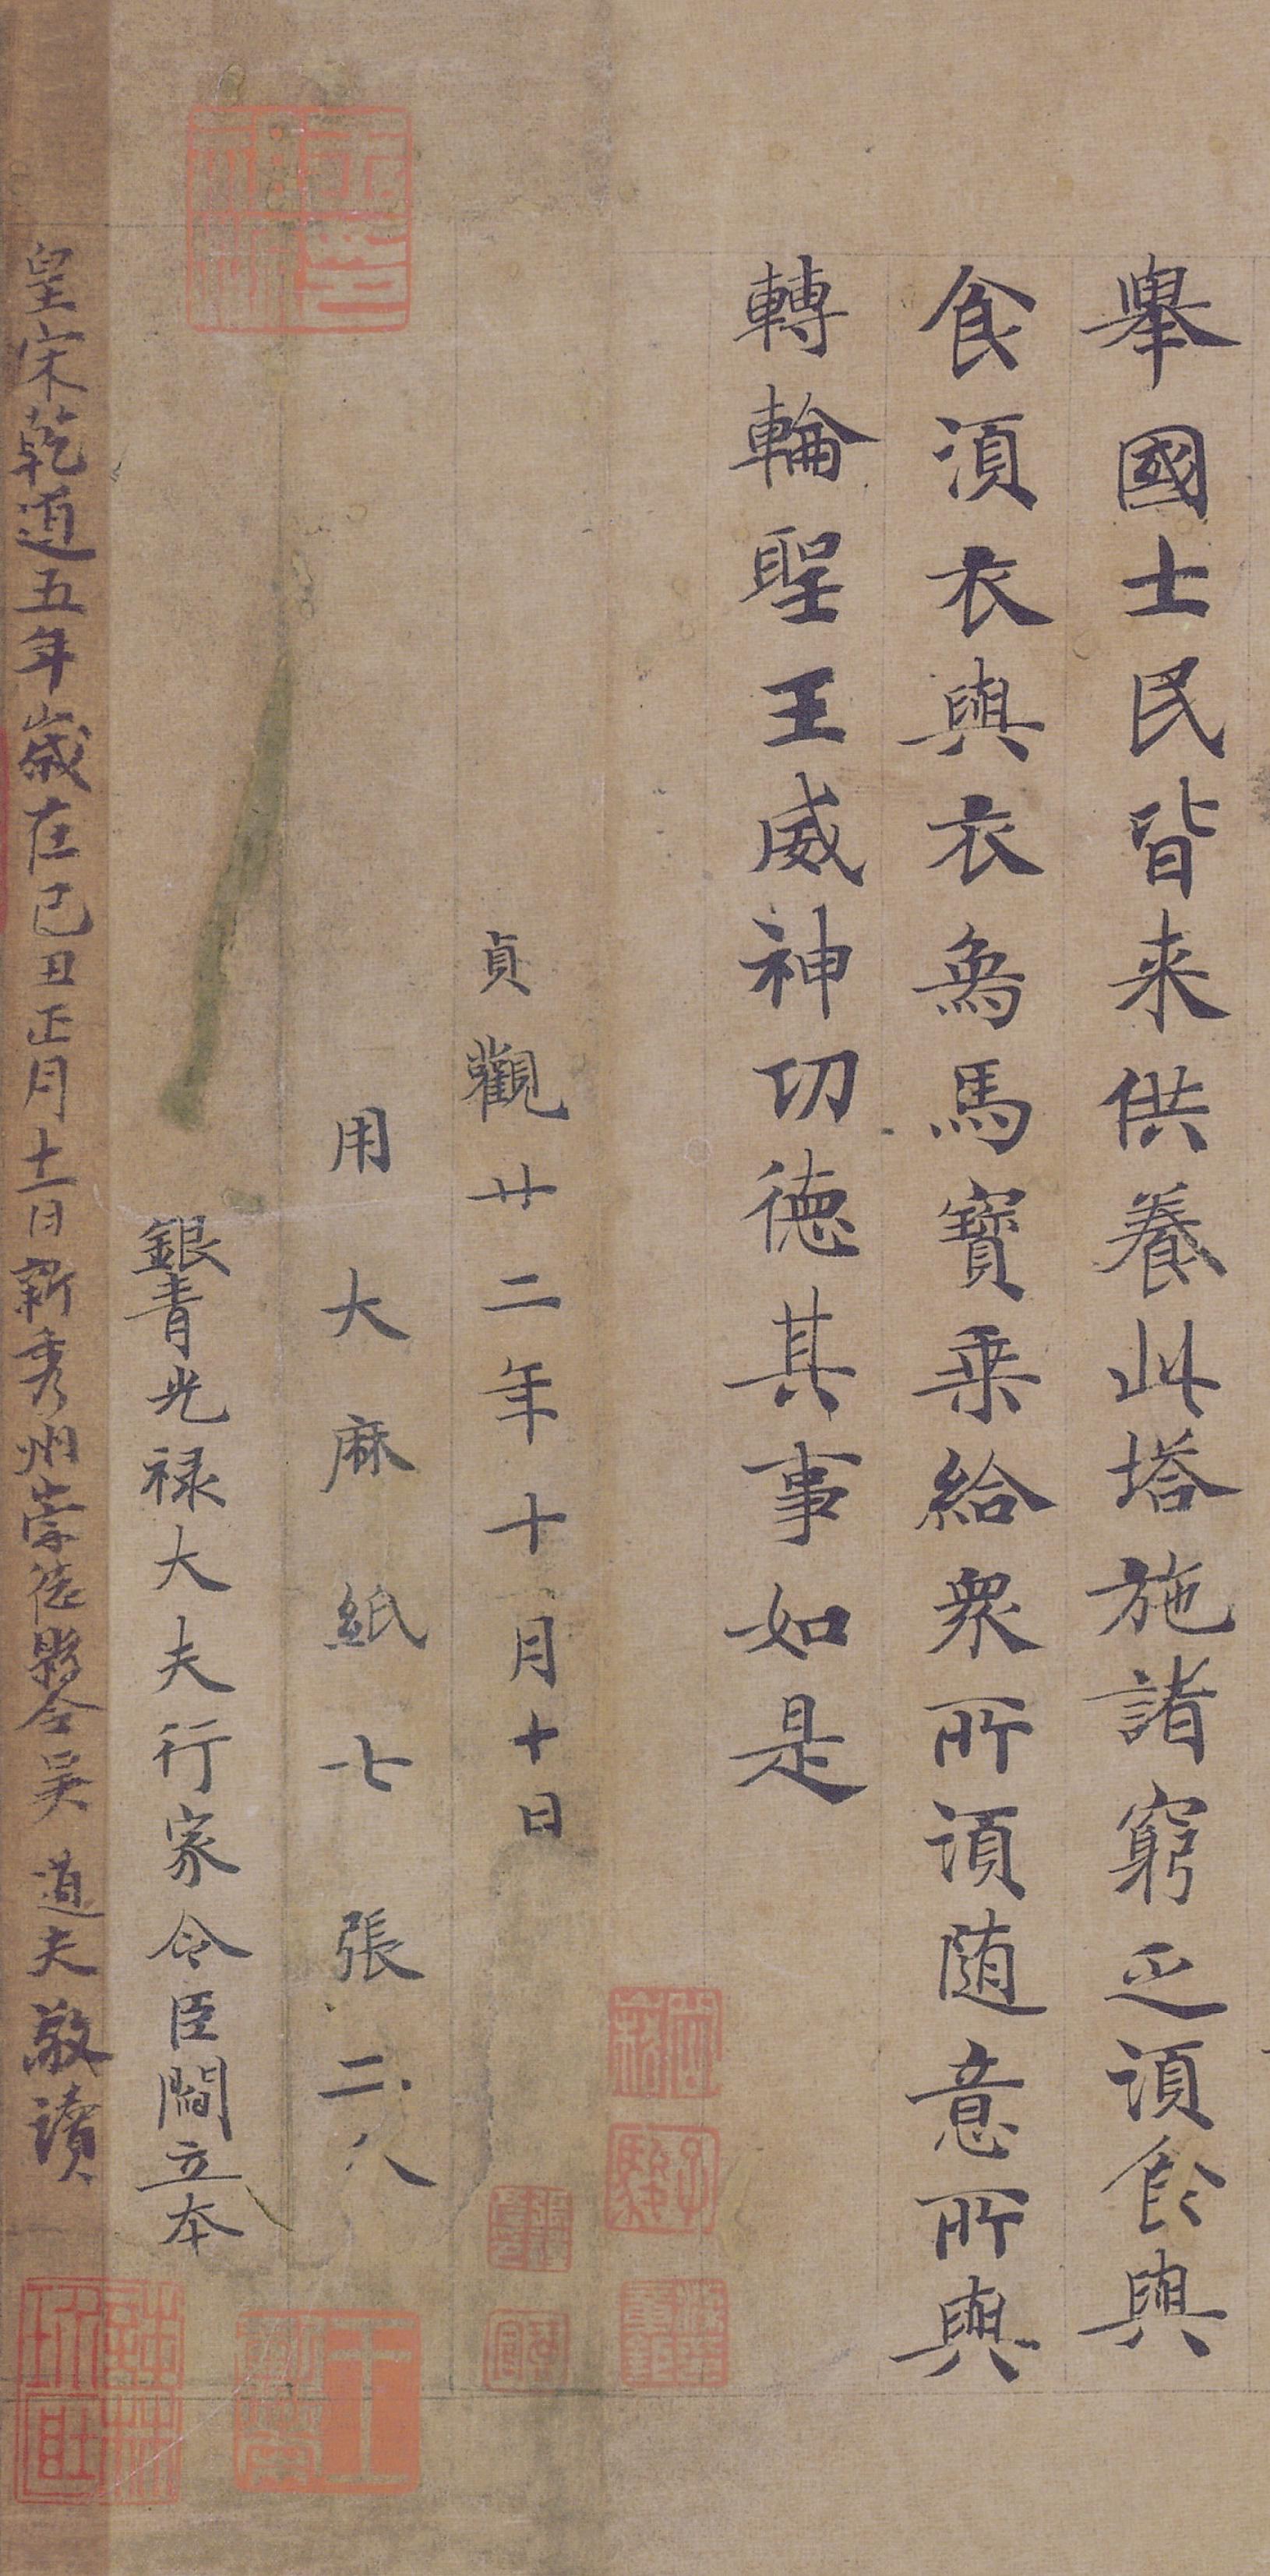 舉國士民皆来供養此塔施諸窮乏須食與
食須衣與衣象馬寶乗給衆所須随意所與
轉輪聖王威神功德其事如是
貞觀廿二年十月十日
用大麻紙七張二人
銀青光禄大夫行家令臣閻立本
皇宋乾道五年歲在己丑正月十一日新秀州崇德縣令吴道夫敬讀